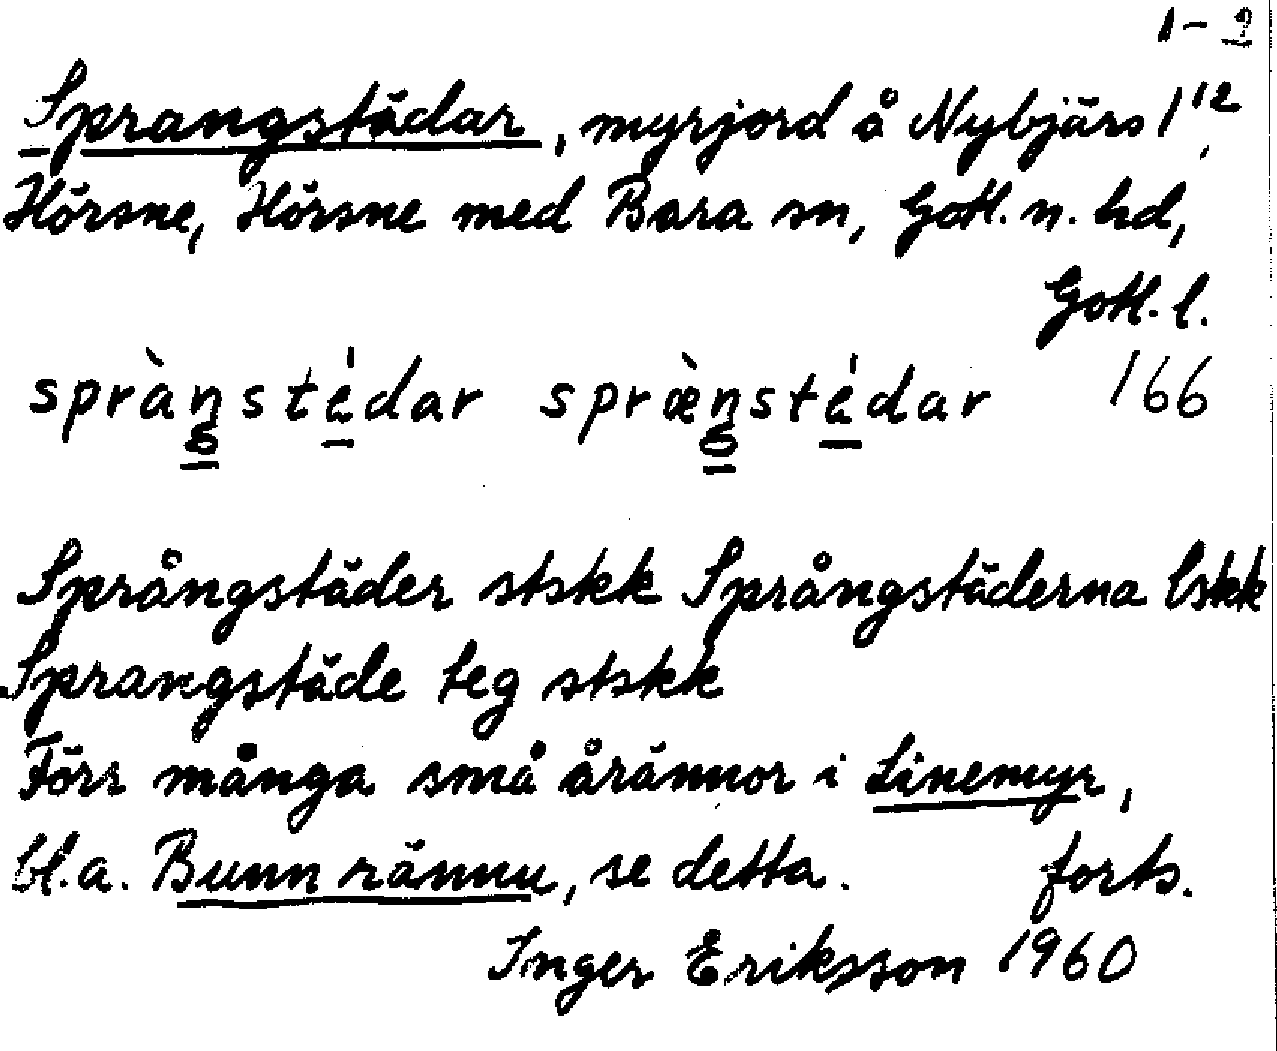 1-2
Sprangstädar, myrjord å Nybjärs 1¹²,
Hörsne, Hörsne med Bara sn, Gotl. n. hd,
Gotl. l.
sprànstédar sprænstédar 166
Språngstäder stskk Språngstäderna lskk
Sprangstäde teg stskk
Förr många små årännor i Linemyr,
bl.a. Bunn rännu, se detta. forts.
Inger Eriksson 1960